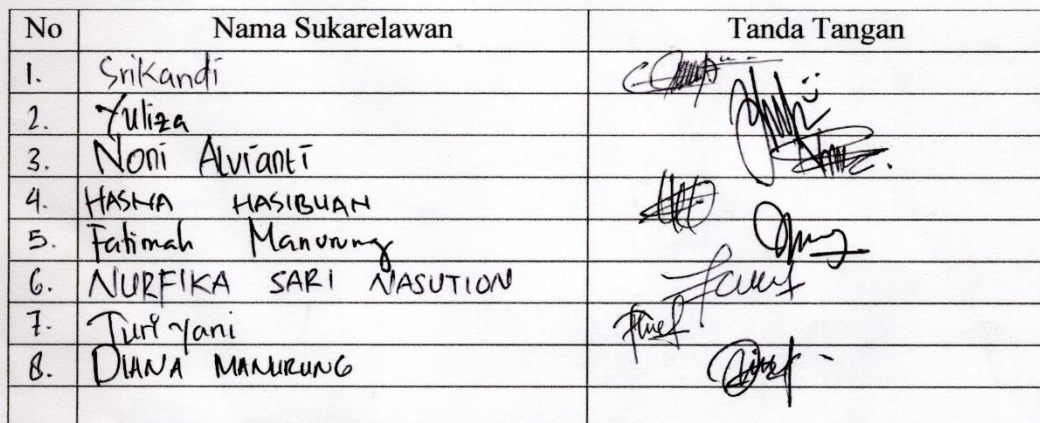 No Nama Sukarelawan Tanda Tangan
1. Srikandi
2. Yuliza
3. Noni Alvianti
4. HASNA HASIBUAN
5. Fatimah Manurung
6. NURFIKA SARI NASUTION
7. Turi yani
8. DIANA MANURUNG